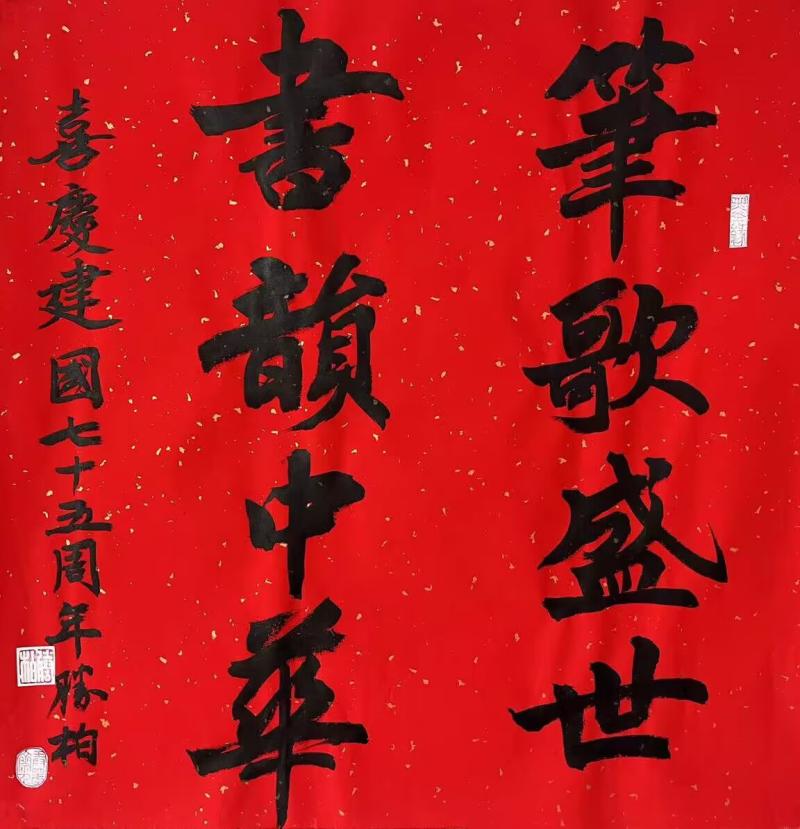 筆歌盛世
書韻中華
喜慶建國七十五周年勝柏